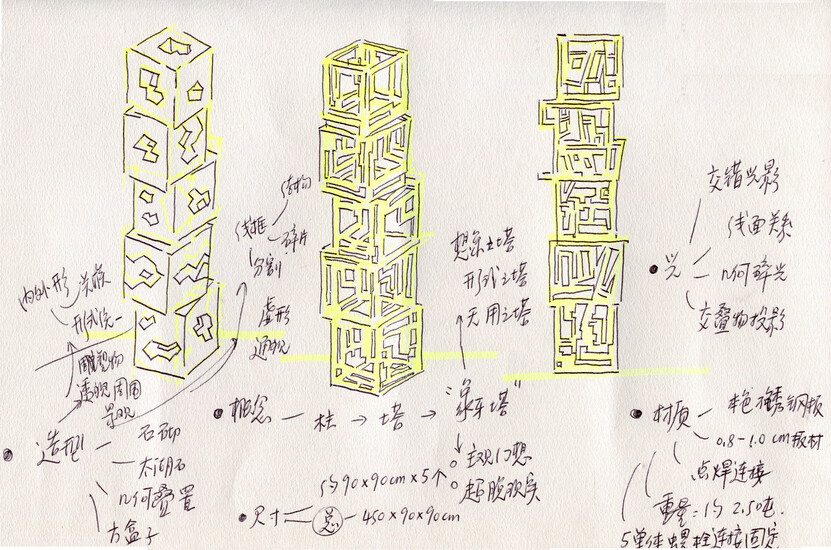 内外形
关联
形式统一
雕塑物
透视周围
景观
造型
石砌
太湖石
几何叠置
方盒子
结构
线框
碎片
分割
虚形
透视
概念 — 柱 → 塔 → "象牙塔"
想象之塔
形式之塔
无用之塔
主观幻想
超脱现实
约90×90cm×5个
尺寸 总 — 450×90×90cm
光
交错光影
线面关系
几何碎光
交叠物投影
材质 — 本色不锈钢板
0.8-1.0cm板材
点焊连接
重量:约2.50吨.
5单体螺栓连接固定